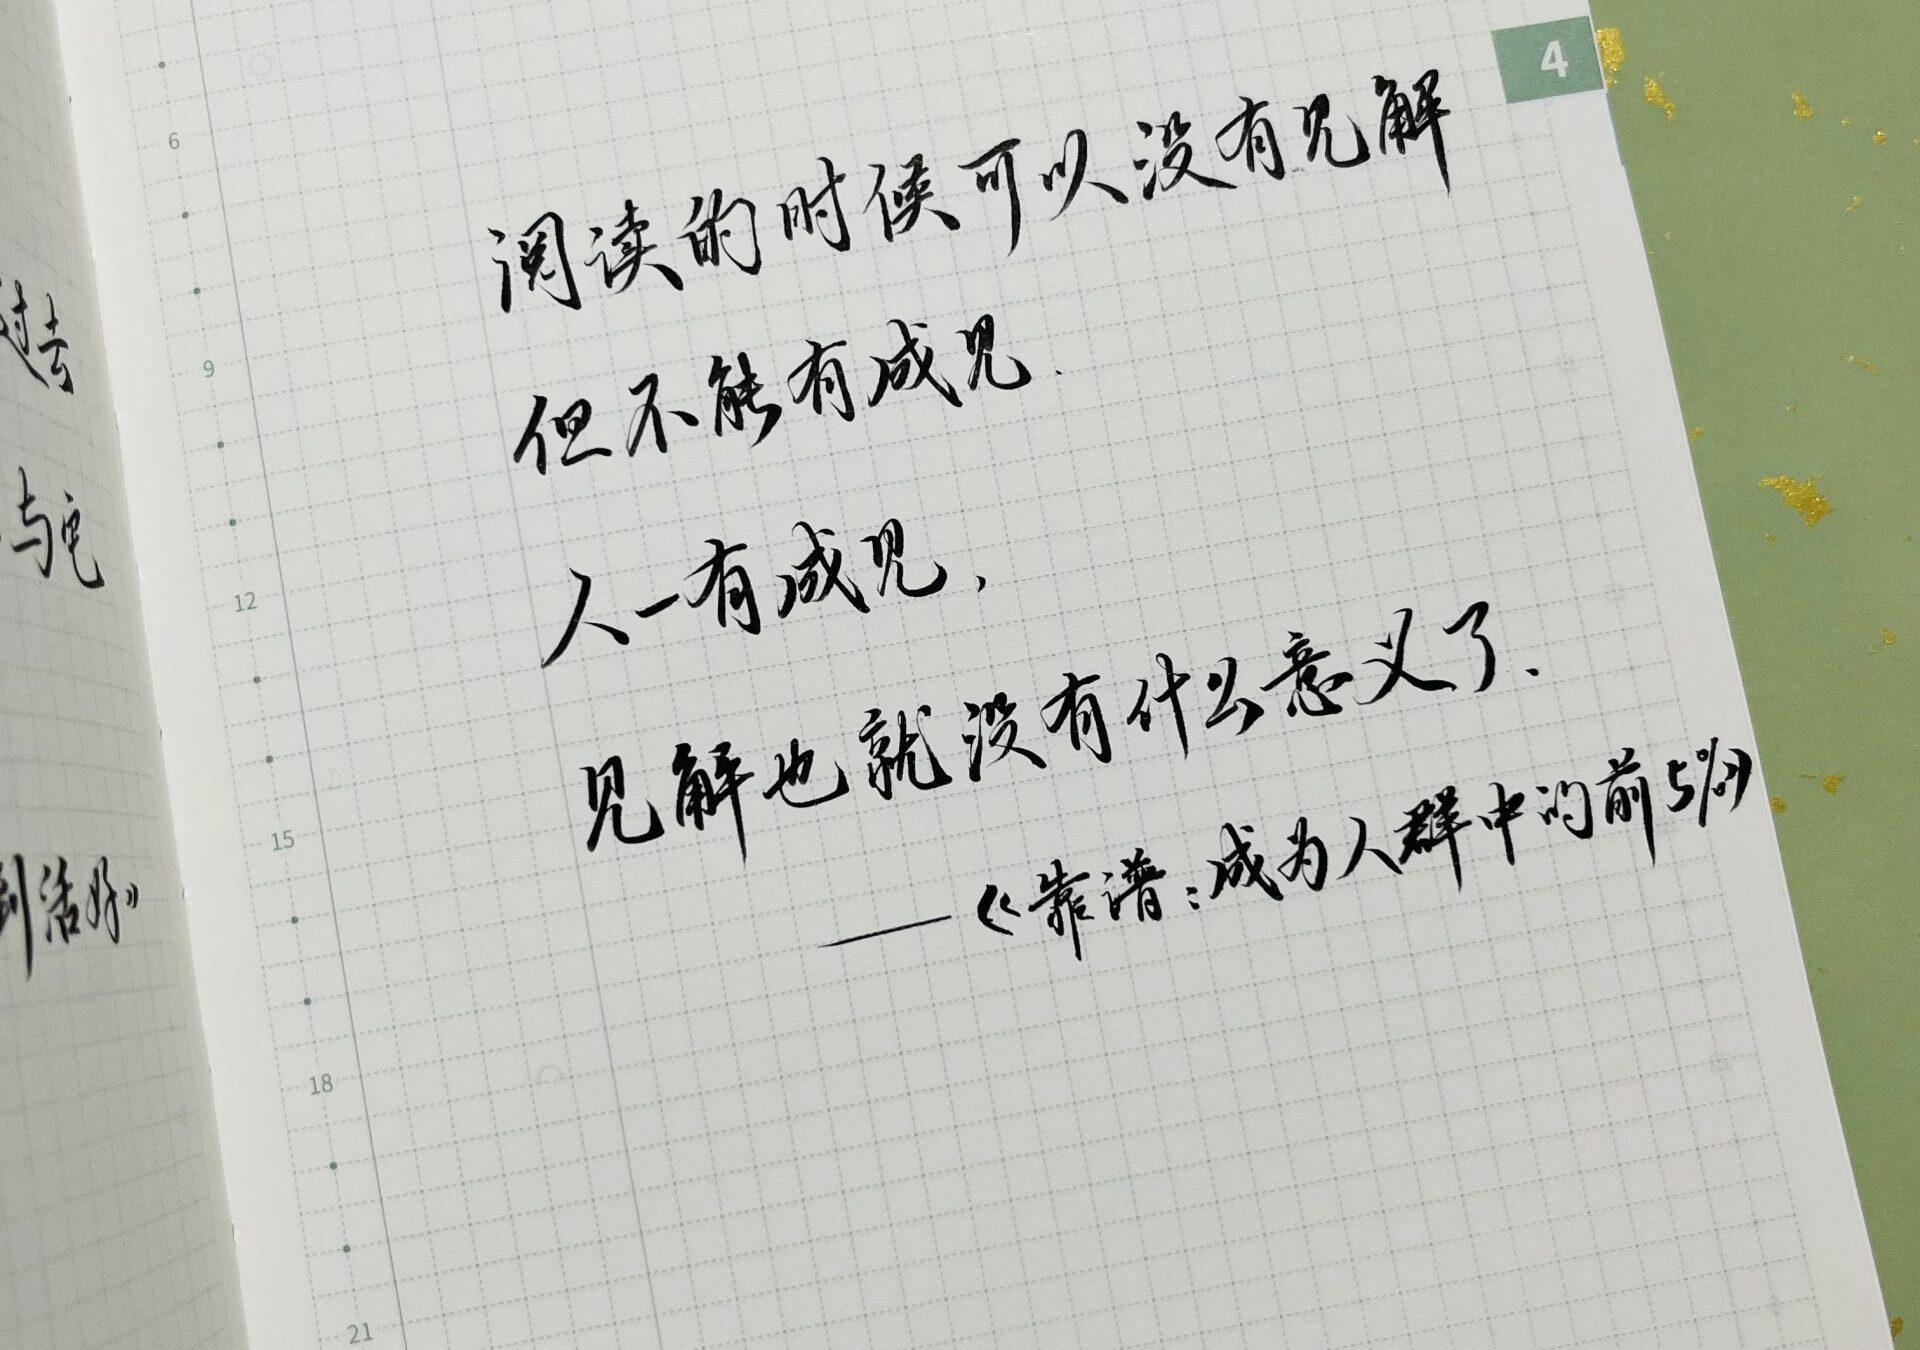 4
阅读的时候可以没有见解
但不能有成见.
人一有成见,
见解也就没有什么意义了.
——《靠谱:成为人群中的前5%》
6
9
12
15
18
21
过去
与它
到活好》